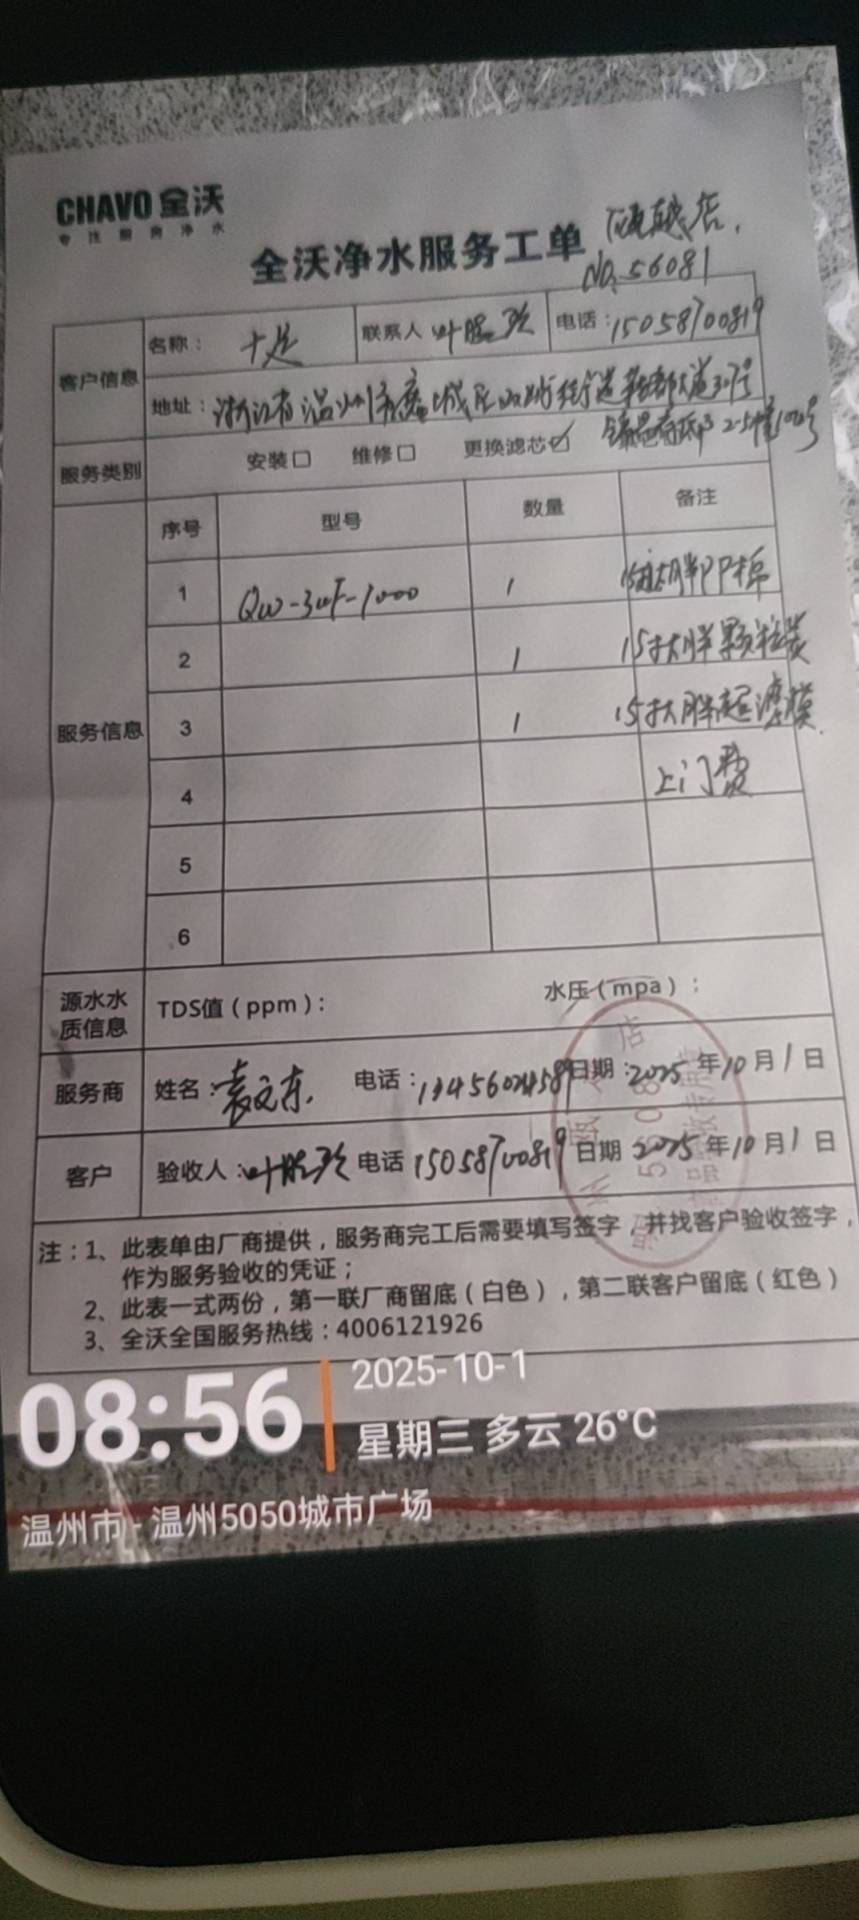 CHAVO 全沃
专注厨房净水
全沃净水服务工单
店,
No.56081
客户信息
名称: 十足 联系人 叶 电话:15058700819
地址:浙江省温州市鹿城区 街道 大道307号
服务类别 安装□ 维修□ 更换滤芯☑
序号 型号 数量 备注
服务信息
1 QW-3UF-1000 1 15寸大胖PP棉
2 1 15寸大胖颗粒炭
3 1 15寸大胖超滤膜
4 上门费
5
6
源水水质信息 TDS值(ppm): 水压(mpa):
服务商 姓名:袁文东. 电话: 日期:2025年10月1日
客户 验收人:叶 电话 15058700819 日期 2025年10月1日
注:1、此表单由厂商提供,服务商完工后需要填写签字,并找客户验收签字,
作为服务验收的凭证;
2、此表一式两份,第一联厂商留底(白色),第二联客户留底(红色)
3、全沃全国服务热线:4006121926
08:56
2025-10-1
星期三 多云 26°C
温州市-温州5050城市广场